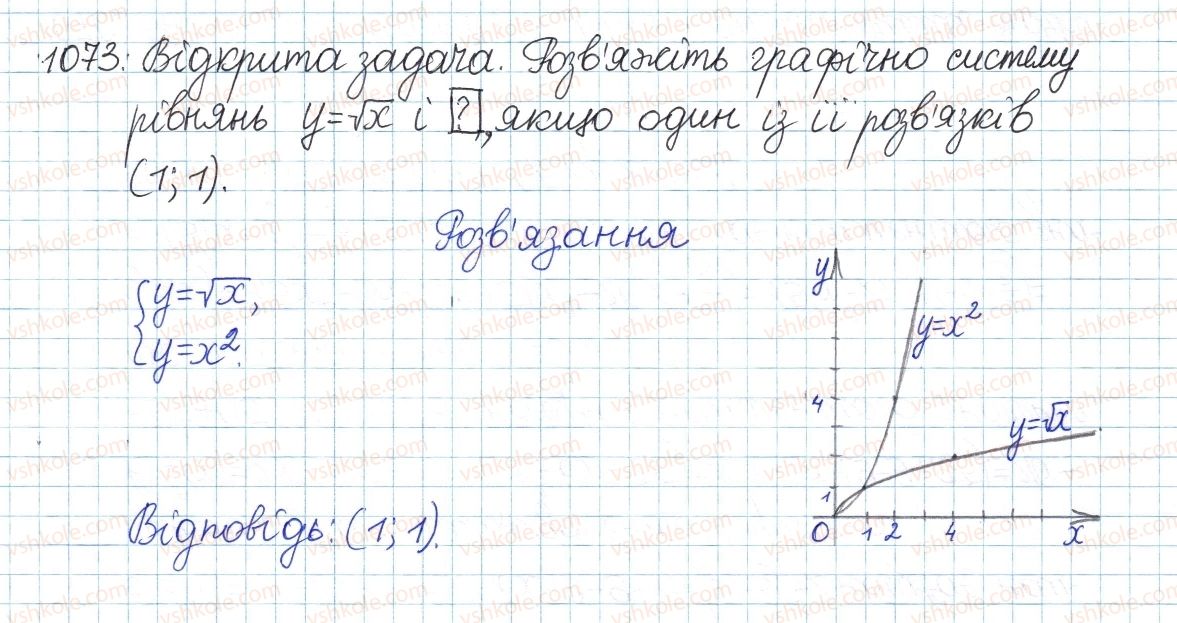 1073. Відкрита задача. Розв'яжіть графічно систему
рівнянь y=√x і [?], якщо один із її розв'язків
(1; 1).
Розв'язання
{y=√x,
y=x².
y
y=x²
4
y=√x
1
0 1 2 4 x
Відповідь: (1; 1).
vshkole.com